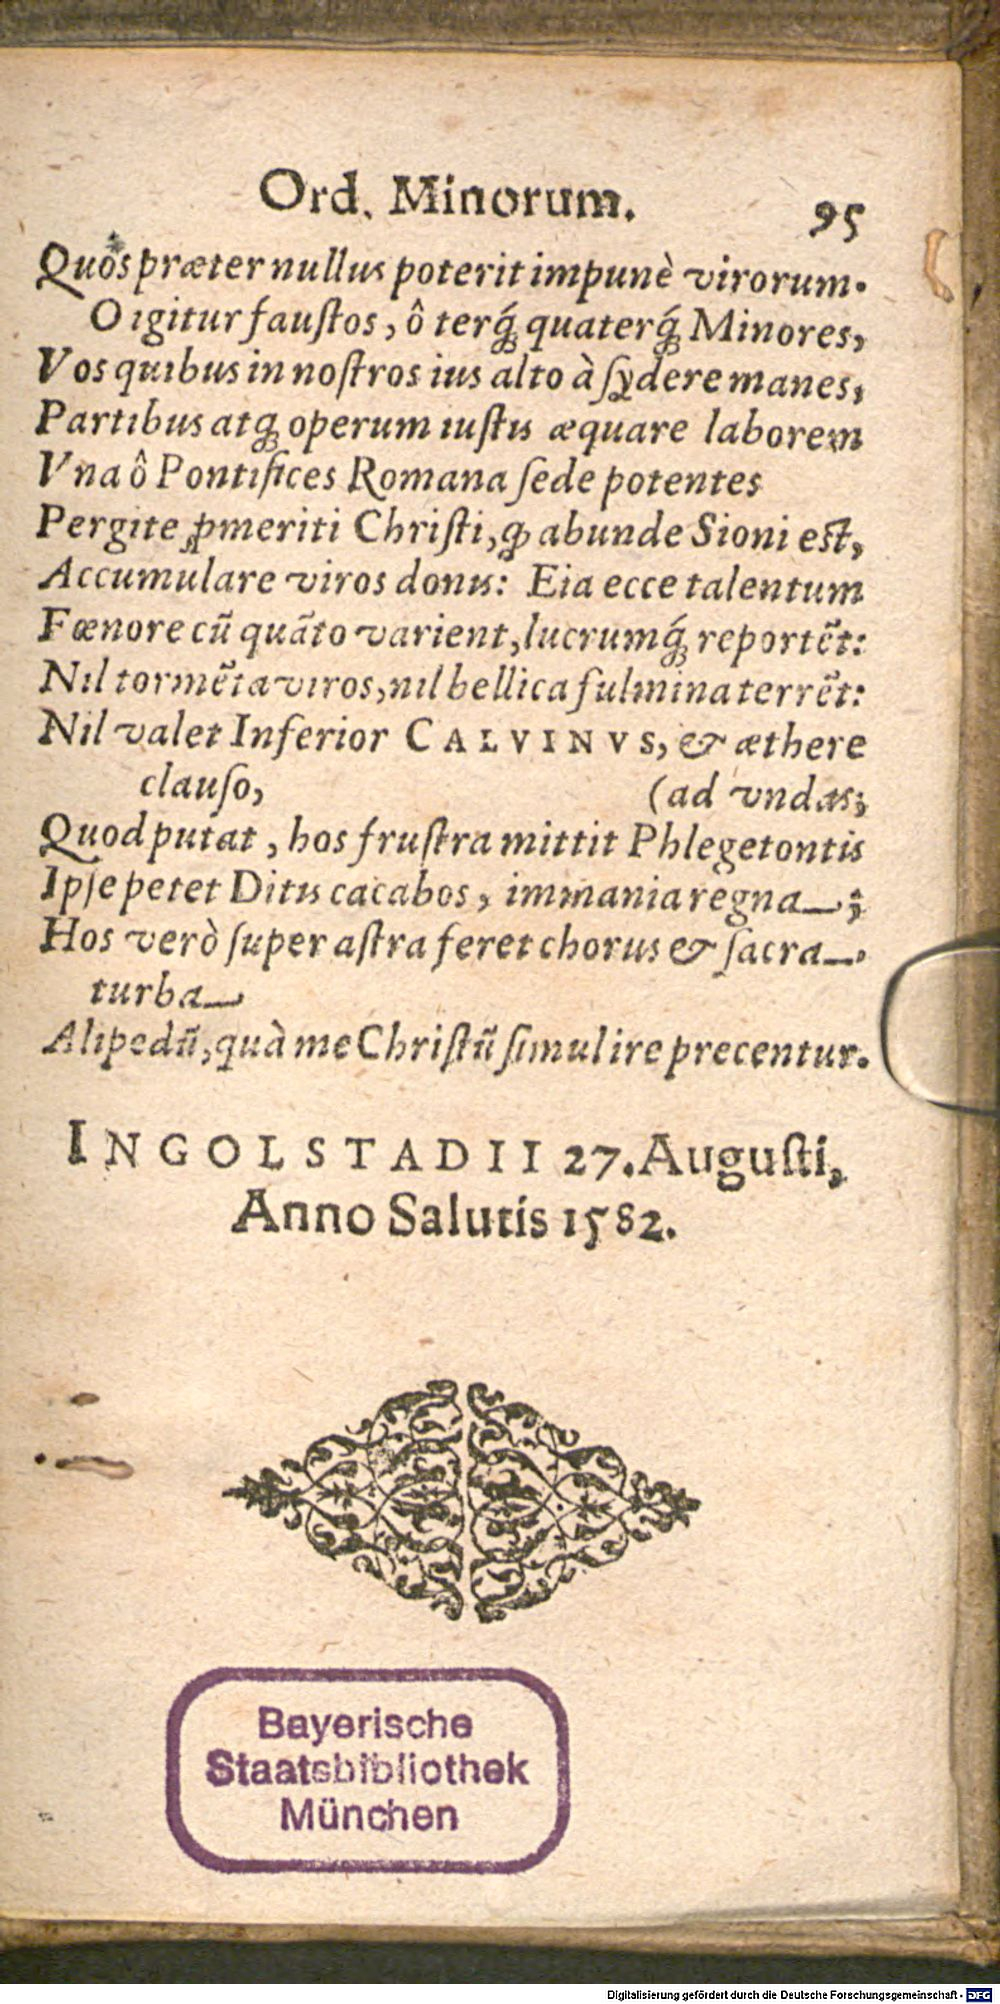 Ord. Minorum. 95
Quos præter nullus poterit impunè virorum.
O igitur faustos, ô terq́; quaterq́; Minores,
Vos quibus in nostros ius alto à sydere manes,
Partibus atq; operum iustis æquare laborem
Vna ô Pontifices Romana sede potentes
Pergite ꝓmeriti Christi, ꝙ abunde Sioni est,
Accumulare viros donis: Eia ecce talentum
Fœnore cũ quãto varient, lucrumq́; reportẽt:
Nil tormẽta viros, nil bellica fulmina terrẽt:
Nil valet Inferior CALVINVS, & æthere
clauso, (ad vndas;
Quod putat, hos frustra mittit Phlegetontis
Ipse petet Ditis cacabos, immania regna;
Hos verò super astra feret chorus & sacra
turba
Alipedũ, quà me Christũ simul ire precentur.
INGOLSTADII 27. Augusti,
Anno Salutis 1582.
Bayerische
Staatsbibliothek
München
Digitalisierung gefördert durch die Deutsche Forschungsgemeinschaft - DFG